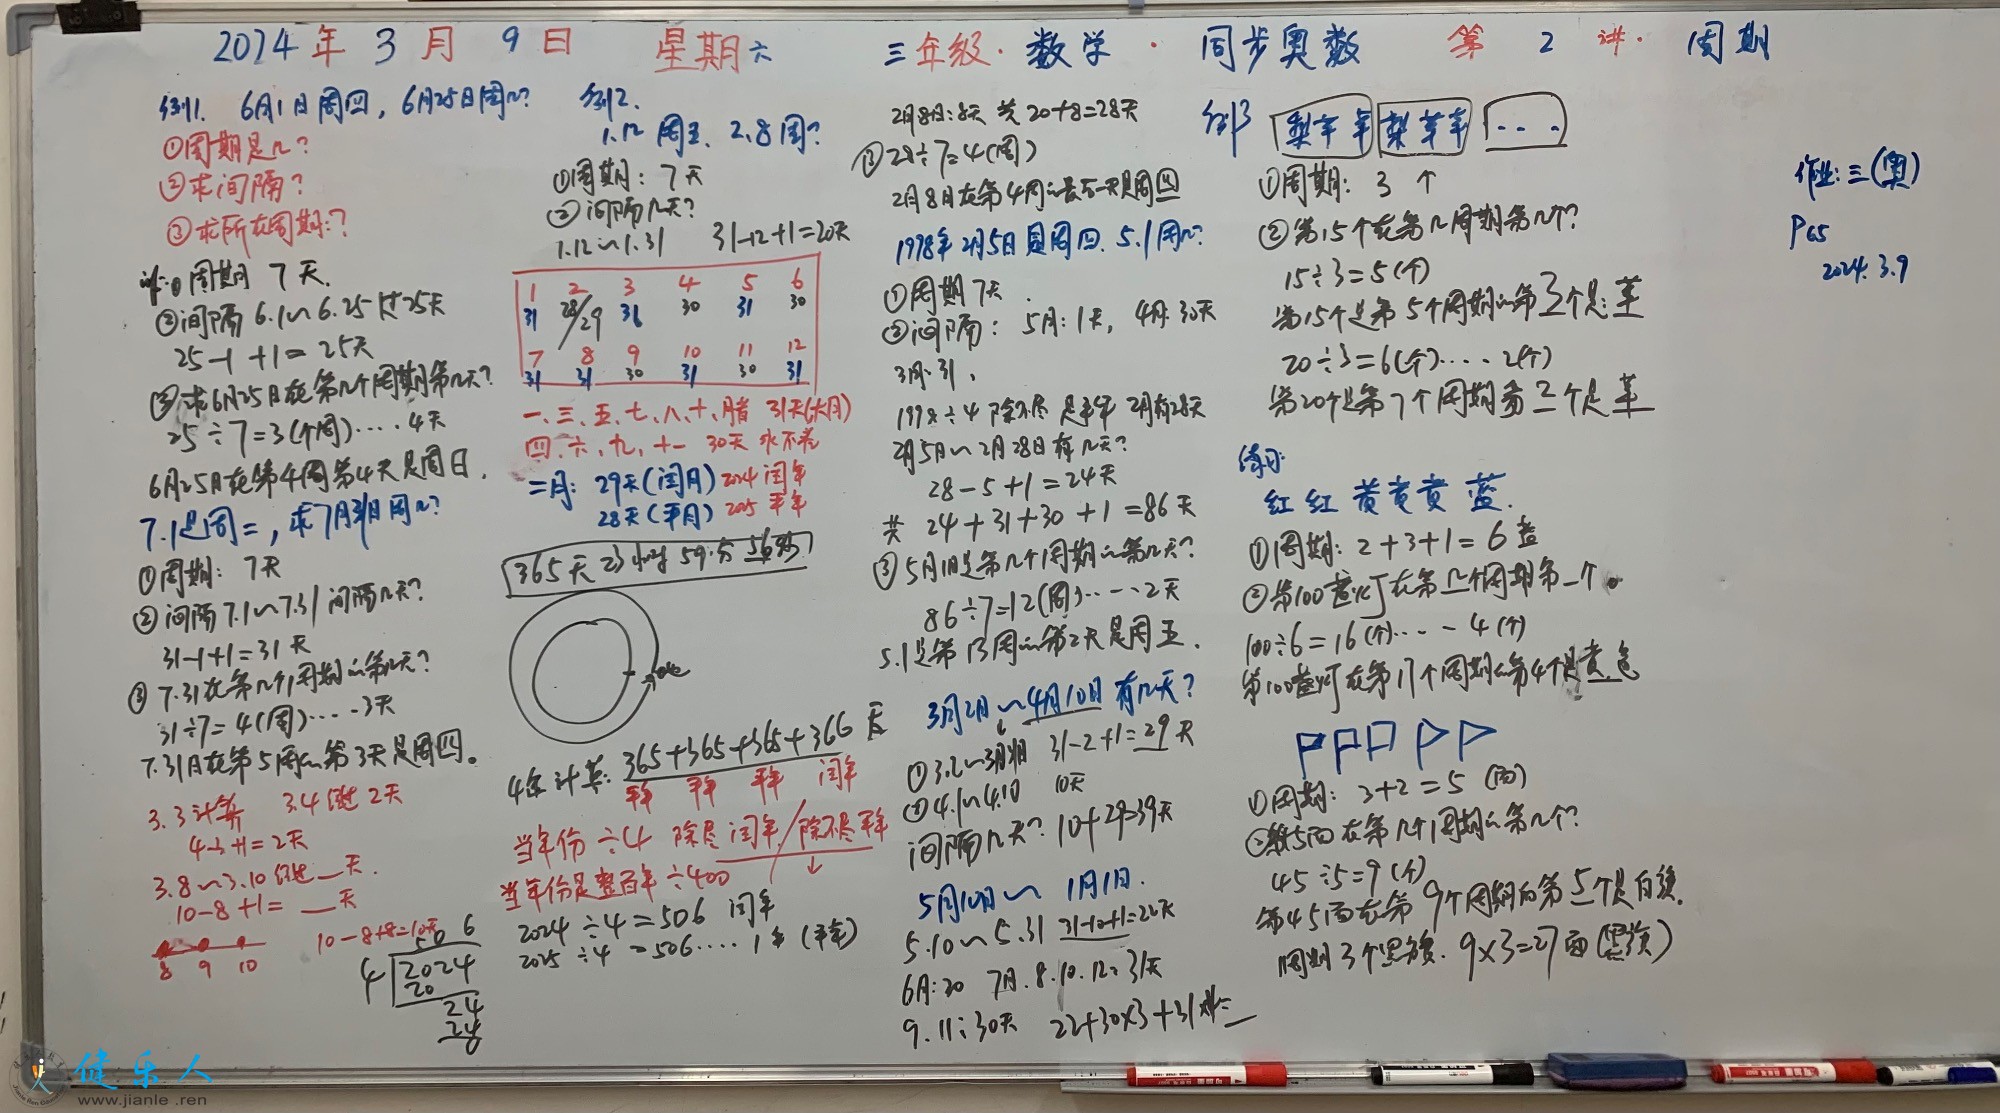 2024年3月9日 星期六 三年级·数学·同步奥数 第2讲·周期
例1. 6月1日周四，6月25日周几?
①周期是几?
②求间隔?
③求所在周期:?
①周期 7天.
②间隔 6.1～6.25 共25天
25-1+1=25天
③求6月25日在第几个周期第几天?
25÷7=3(个周)....4天
6月25日在第4周第4天是周日.
7.1是周二,求7月31日周几?
①周期: 7天
②间隔7.1～7.31间隔几天?
31-1+1=31天
③7.31在第几个周期的第几天?
31÷7=4(周)....3天
7.31日在第5周的第3天是周四。
3.3计算 3.4 2天
4-3+1=2天
3.8～3.10 __天.
10-8+1=__天
8 9 10
506
4 2024
20
24
24
例2.
1.12 周五. 2.8周?
①周期: 7天
②间隔几天?
1.12～1.31 31-12+1=20天
1 2 3 4 5 6
31 28/29 31 30 31 30
7 8 9 10 11 12
31 31 30 31 30 31
一、三、五、七、八、十、腊 31天(大月)
四、六、九、十一 30天 永不差
二月: 29天(闰月) 2024 闰年
28天(平月) 2025 平年
4年计算: 365+365+365+366天
平年 平年 平年 闰年
当年份÷4 除尽闰年/除不尽平年
当年份是整百年÷400
2024÷4=506 闰年
2025÷4=506....1年(平年)
2月8日:8天 共20+8=28天
③28÷7=4(周)
2月8日在第4周的最后一天是周四
1998年2月5日是周四. 5.1周几?
①周期7天.
②间隔: 5月:1天, 4月:30天
3月:31,
1998÷4 除不尽 是平年 2月有28天
2月5日～2月28日有几天?
28-5+1=24天
共 24+31+30+1=86天
③5月1日是第几个周期的第几天?
86÷7=12(周)....2天
5.1是第13周的第2天是周五.
3月2日～4月10日有几天?
①3.2～3月31日 31-2+1=29天
②4.1～4.10 10天
间隔几天? 10+29=39天
5月10日～1月1日.
5.10～5.31 31-10+1=22天
6月:30 7月.8.10.12:31天
9.11:30天 22+30×3+31×
例3 梨苹苹 梨苹苹 ...
①周期: 3个
②第15个在第几周期第几个?
15÷3=5(个)
第15个是第5个周期的第三个是:苹
20÷3=6(个)....2(个)
第20个是第7个周期第二个是苹
练习:
红红黄黄黄蓝.
①周期: 2+3+1=6盏
②第100盏灯在第几个周期第一个。
100÷6=16(个)....4(个)
第100盏灯在第17个周期的第4个是黄色
①周期: 3+2=5(面)
②第45面在第几个周期的第几个?
45÷5=9(个)
第45面在第9个周期的第5个是白旗.
周期3个黑旗. 9×3=27面(黑旗)
作业:三(奥)
P65
2024.3.9
健乐人
www.jianle.ren